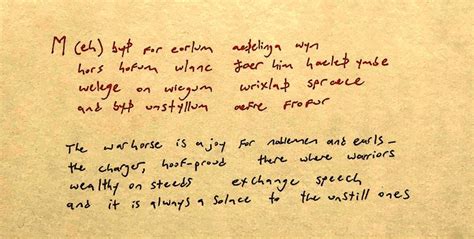 M (eh) byþ for eorlum aeþelinga wyn
hors hofum wlanc ðaer him haeleþ ymbe
welege on wicgum wrixlaþ spraece
and byþ unstyllum aefre frofur
The warhorse is a joy for noblemen and earls –
the charger, hoof-proud there where warriors
wealthy on steeds exchange speech
and it is always a solace to the unstill ones